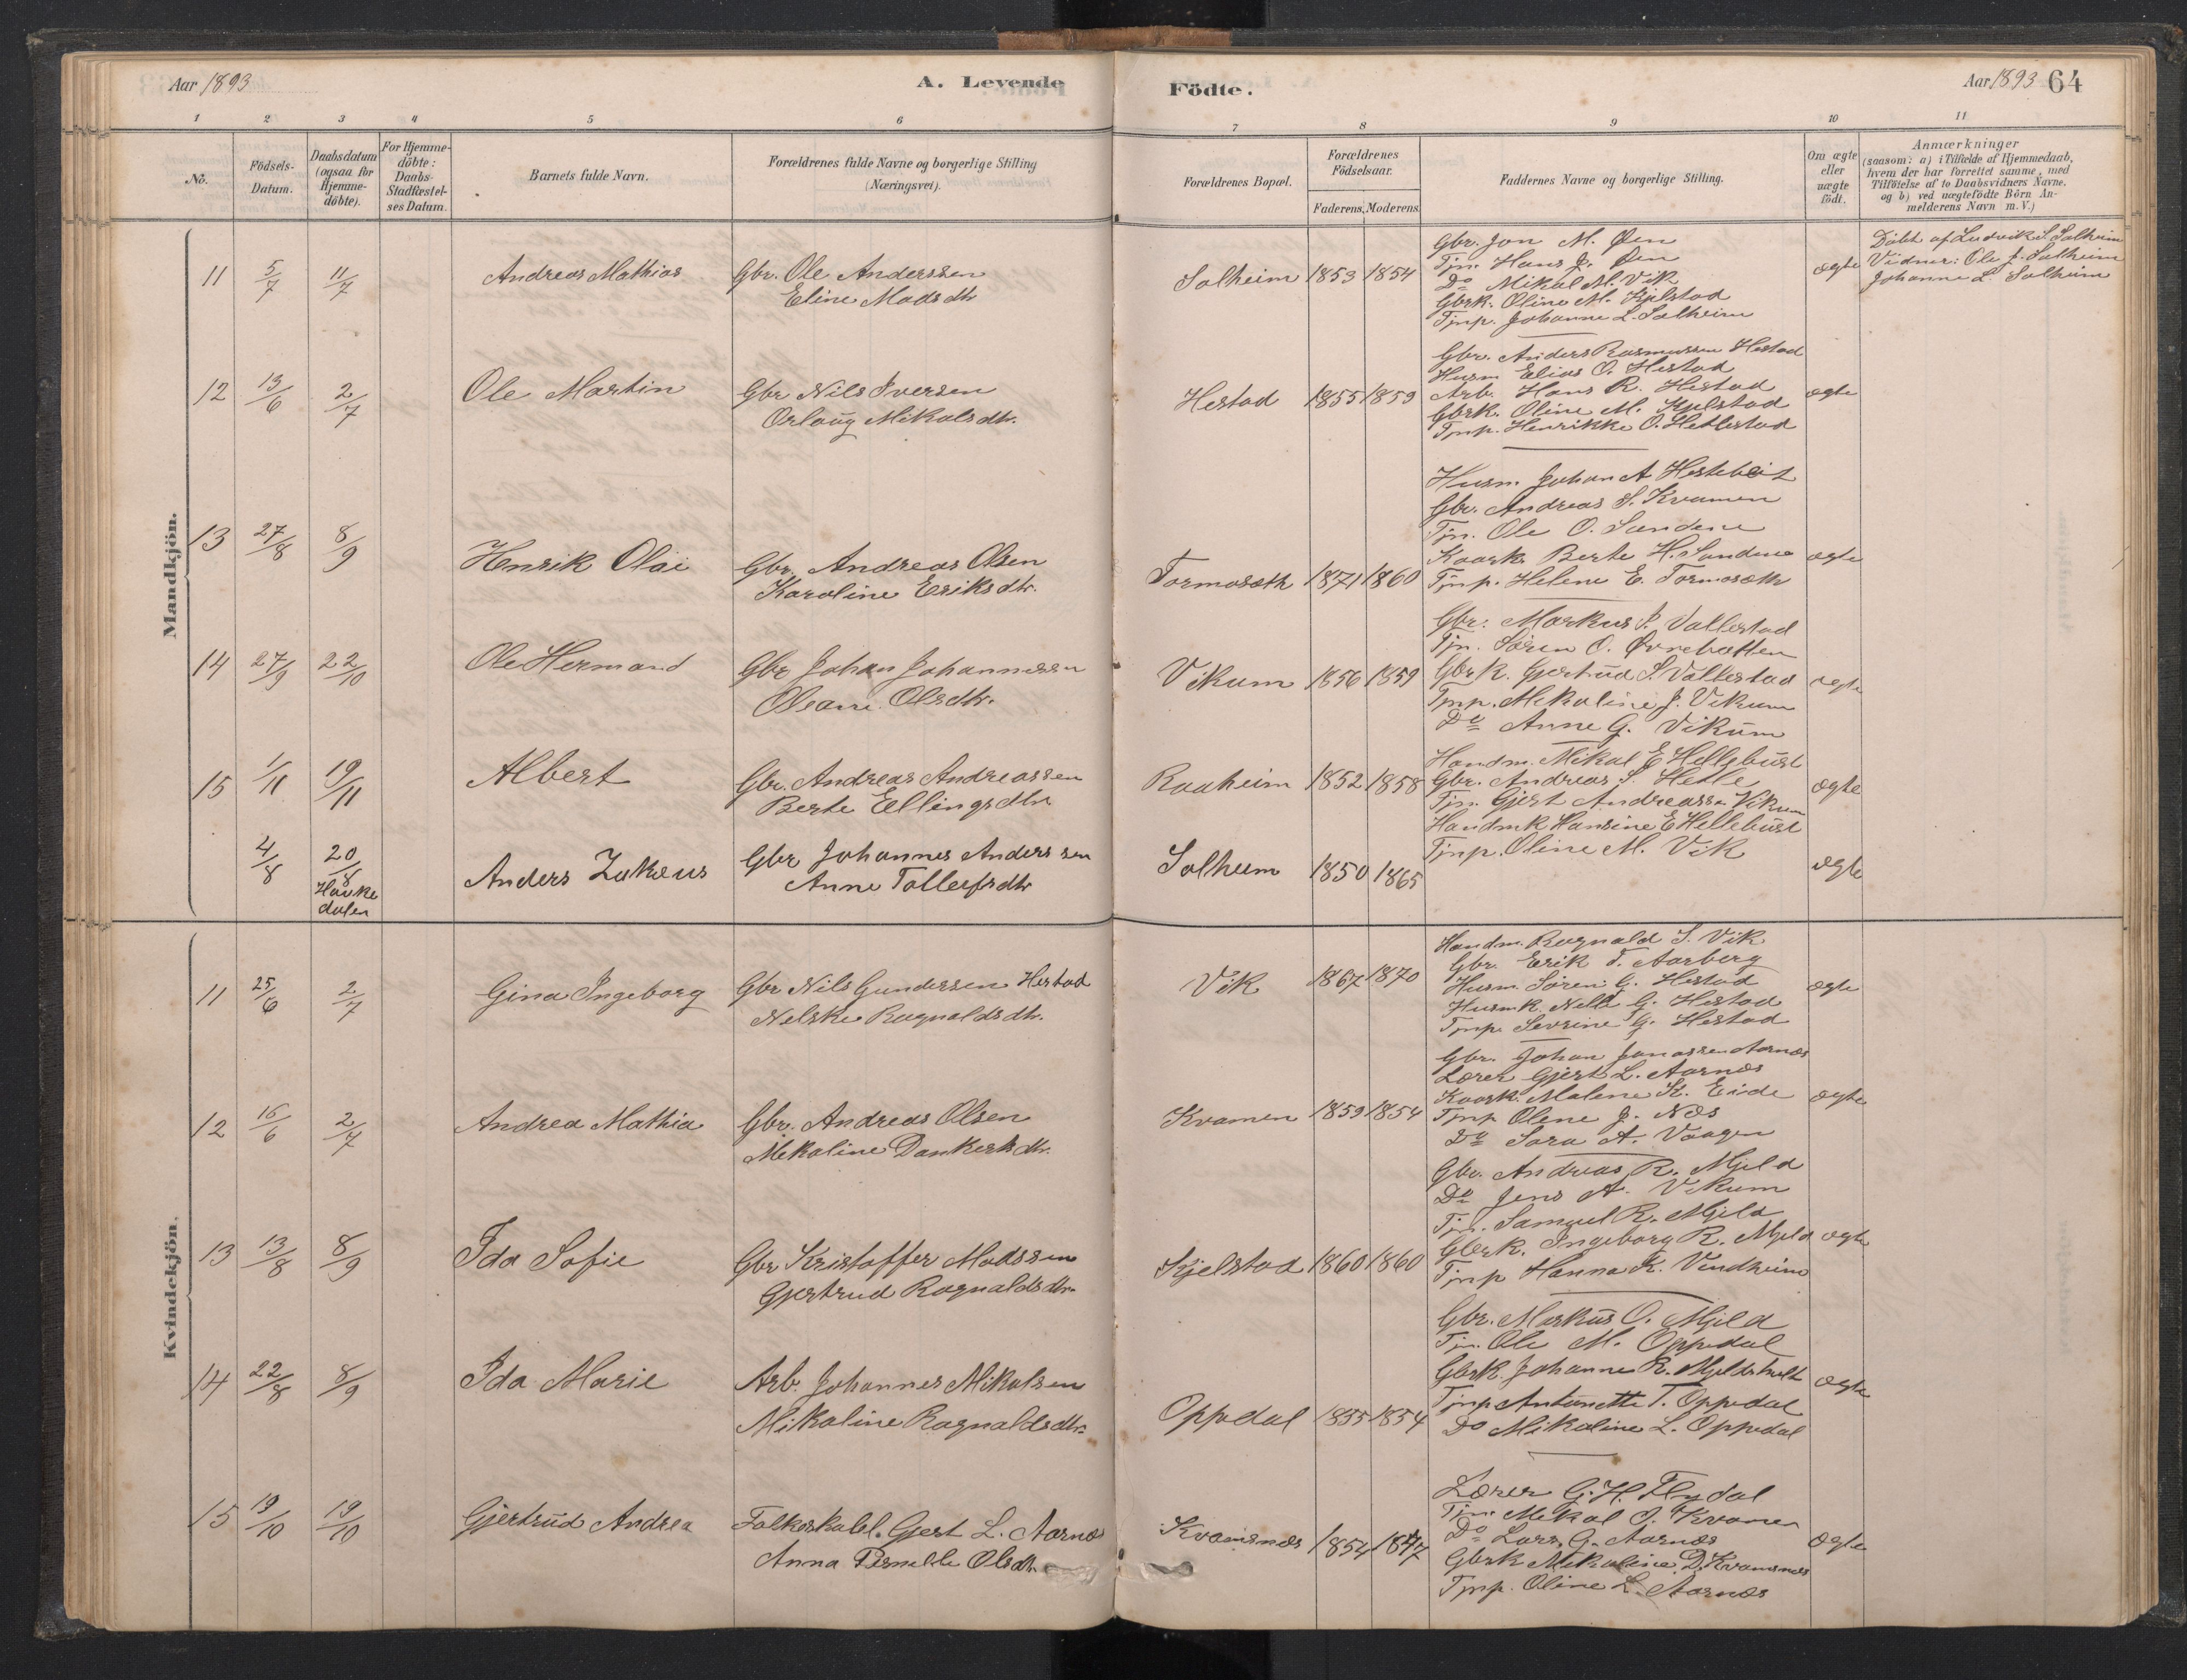 Aar 1893
A. Levende
Födte.
Aar 1893 64
1 2 3 4 5 6 7 8 9 10 11
No.
Födsels-
Datum.
Daabsdatum
(ogsaa for
Hjemme-
döbte).
For Hjemme-
döbte:
Daabs-
Stadfæstel-
ses Datum.
Barnets fulde Navn.
Forældrenes fulde Navne og borgerlige Stilling
(Næringsvei).
Forældrenes Bopæl.
Forældrenes
Födselsaar.
Faderens. Moderens.
Faddernes Navne og borgerlige Stilling.
Om ægte
eller
uægte
födt.
Anmærkninger
(saasom: a) i Tilfælde af Hjemmedaab,
hvem der har forrettet samme, med
Tilföielse af to Daabsvidners Navne,
og b) ved uægtefödte Börn An-
melderens Navn m. V.)
Mandkjön.
11 5/7 11/7 Andreas Mathias
Gbr. Ole Anderssen
Eline Madsdtr
Solheim 1853 1854
Gbr. Jon M. Øen
Tjn. Hans J. Øen
Do Mikal M. Vik
Gbrk. Oline M. Kjelstad
Tjnp. Johanne L. Solheim
ægte
Döbt af Ludvik S. Solheim
Vidner: Ole J. Solheim
Johanne L. Solheim
12 13/6 2/7 Ole Martin
Gbr Nils Iversen
Orlaug Mikalsdtr.
Hestad 1855 1859
Gbr. Anders Rasmussen Hestad
Husm Elias O. Hestad
Arb. Hans R. Hestad
Gbrk. Oline M. Kjelstad
Tjnp. Henrikke O. Hetlestad
ægte
13 27/8 8/9 Henrik Olai
Gbr. Andreas Olsen
Karoline Eriksdtr.
Tormosæth 1871 1860
Husm. Johan A. Hestebeit
Gbr. Andreas S. Kvamen
Tjn. Ole O. Sandene
Kaark. Berte H. Sandene
Tjnp. Helene E. Tormosæth
ægte
14 27/9 22/10 Ole Hermand
Gbr Johan Johannessen
Oleane Olsdtr.
Vikum 1856 1859
Gbr. Markus P. Vallestad
Tjn. Sören O. Øvrebotten
Gbrk. Gjertrud S. Vallestad
Tjnp. Mikaline J. Vikum
Do Anne G. Vikum
ægte
15 1/11 19/11 Albert
Gbr. Andreas Andreassen
Berte Ellingsdtr
Raaheim 1852 1858
Handm. Mikal E Hellebust
Gbr. Andreas S. Hetle
Tjn. Gjert Andreass. Vikum
Handmk Hansine E Hellebust
Tjnp. Oline M. Vik
ægte
4/8 20/8
Hauke
dalen
Anders Zakæus
Gbr Johannes Anderssen
Anne Tollefsdtr
Solheim 1850 1865
ægte
Kvindekjön.
11 25/6 2/7 Gina Ingeborg
Gbr Nils Gundersen Hestad
Nelske Ragnaldsdtr.
Vik 1867 1870
Handm. Ragnald S. Vik
Gbr. Erik T. Aarberg
Husm. Sören G. Hestad
Husmk. Nille G. Hestad
Tjnp. Sevrine G. Hestad
ægte
12 16/6 2/7 Andrea Mathia
Gbr. Andreas Olsen
Mikaline Dankertsdtr.
Kvamen 1859 1854
Gbr. Johan Jonassen Aarnæs
Lærer Gjert L. Aarnæs
Kaark. Malene K. Eide
Tjnp Olene J. Næs
Do Sara A. Vaagen
ægte
13 13/8 8/9 Ida Sofie
Gbr Kristoffer Madssen
Gjertrud Ragnaldsdtr.
Kjelstad 1860 1860
Gbr. Andreas R. Mjeld
Do Jens A. Vikum
Tjn. Samuel R. Mjeld
Gbrk. Ingeborg R. Mjeld
Tjnp Hanna K. Vindheim
ægte
14 22/8 8/9 Ida Marie
Arb. Johannes Mikalsen
Mikaline Ragnaldsdtr.
Oppedal 1855 1854
Gbr. Markus O. Mjeld
Tjn. Ole M. Oppedal
Gbrk. Johanne R. Mjeldeholt
Tjnp Antonette T. Oppedal
Do Mikaline L. Oppedal
ægte
15 19/10 19/10 Gjertrud Andrea
Folkeskolel. Gjert L. Aarnæs
Anna Pernille Olsdtr
Kvamsnæs 1854 1847
Lærer G. H. Flydal
Tjn. Mikal J. Kvamen
Do Lars G. Aarnæs
Gbrk Mikaline D. Kvamsnæs
Tjnp. Oline L. Aarnæs
ægte